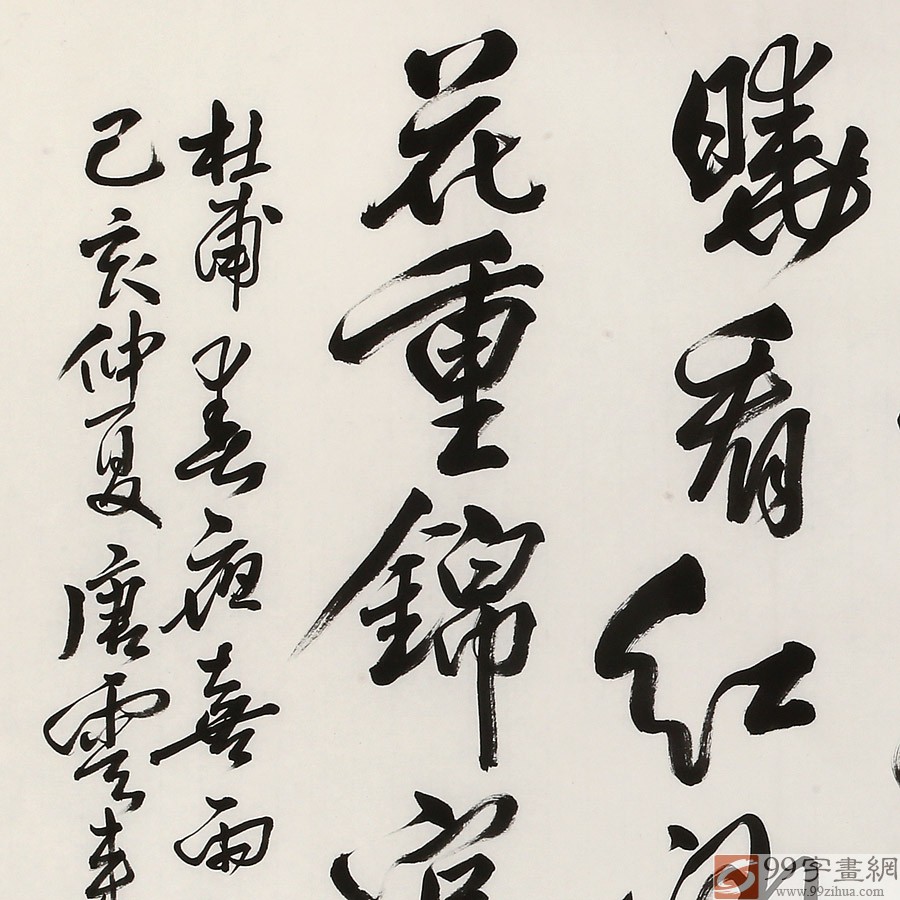 曉看红
花重錦官
杜甫了春夜喜雨
己亥仲夏唐雲來
99字畫網
www.99zihua.com